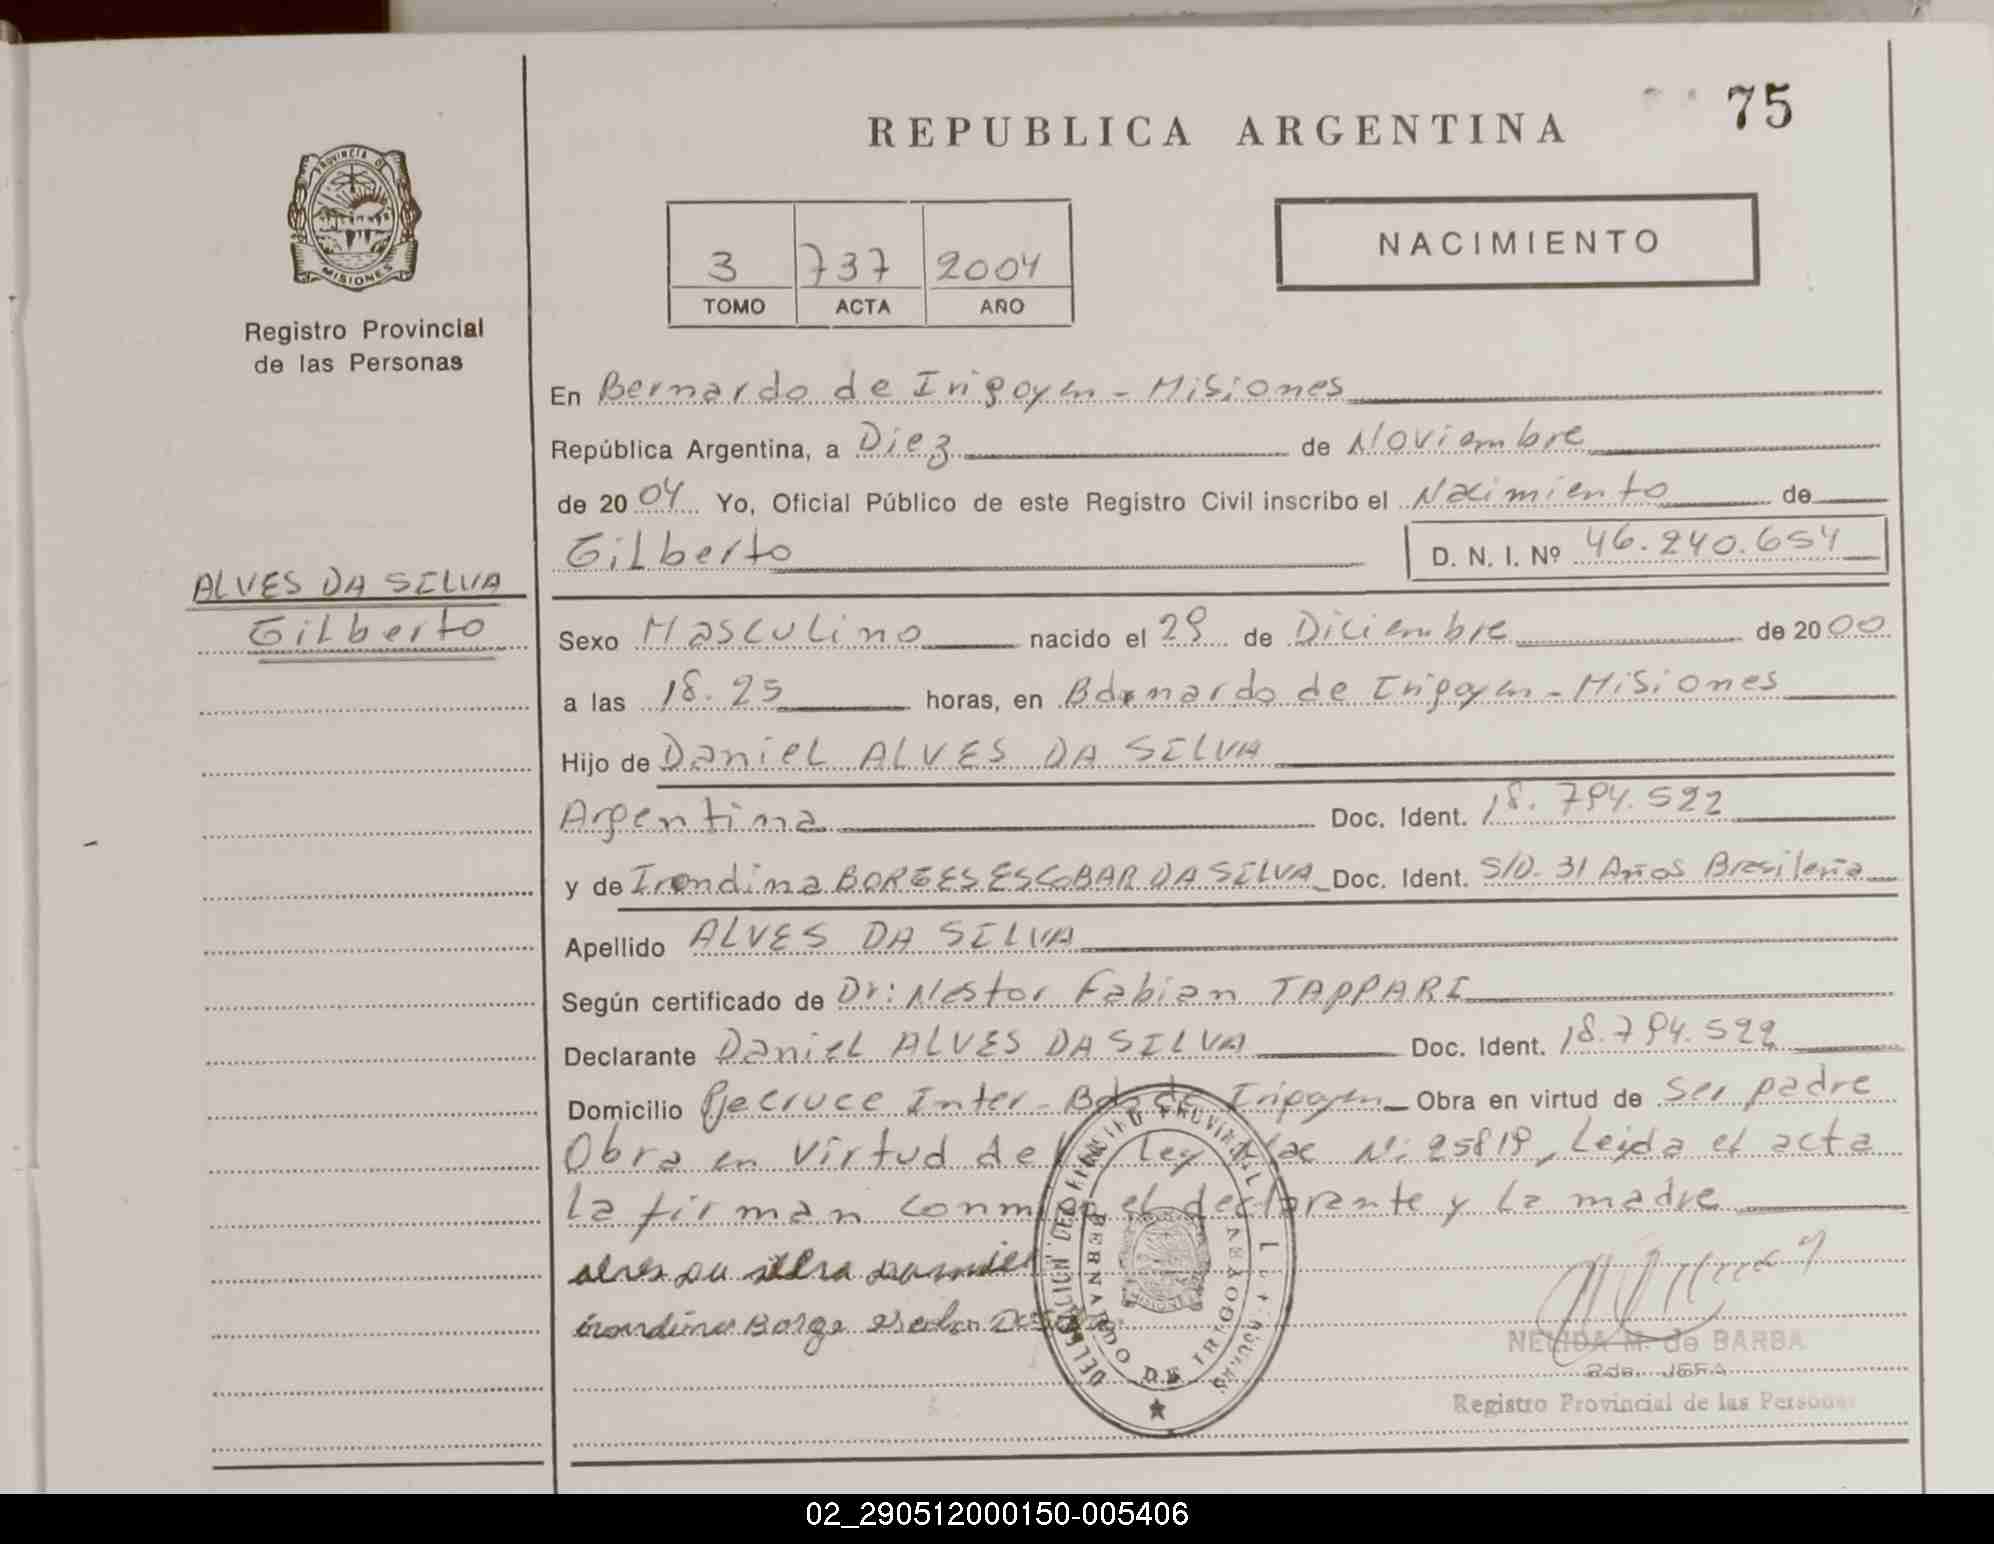 75
REPUBLICA ARGENTINA
PROVINCIA DE
MISIONES
Registro Provincial
de las Personas
NACIMIENTO
3 737 2004
TOMO ACTA AÑO
En Bernardo de Irigoyen - Misiones
República Argentina, a Diez de Noviembre
de 2004 Yo, Oficial Público de este Registro Civil inscribo el Nacimiento de
Gilberto D. N. I. Nº 46.240.654
ALVES DA SILVA
Gilberto
Sexo Masculino nacido el 29 de Diciembre de 2000
a las 18.25 horas, en Bernardo de Irigoyen - Misiones
Hijo de Daniel ALVES DA SILVA
Argentina Doc. Ident. 18.794.522
y de Irondina BORGES ESCOBAR DA SILVA Doc. Ident. S/D. 31 Años Brasileña
Apellido ALVES DA SILVA
Según certificado de Dr: Nestor Fabian TAPPARI
Declarante Daniel ALVES DA SILVA Doc. Ident. 18.794.522
Domicilio Pje cruce Inter - Bdo de Irigoyen Obra en virtud de ser padre
Obra en virtud de ley Nac N: 25819, Leida el acta
la firman conmigo el declarante y la madre
alves da silva
irondina Borge
BERNARDO DE IRIGOYEN
MISIONES
NELIDA M. de BARBA
2da. JEFA
Registro Provincial de las Personas
02_290512000150-005406